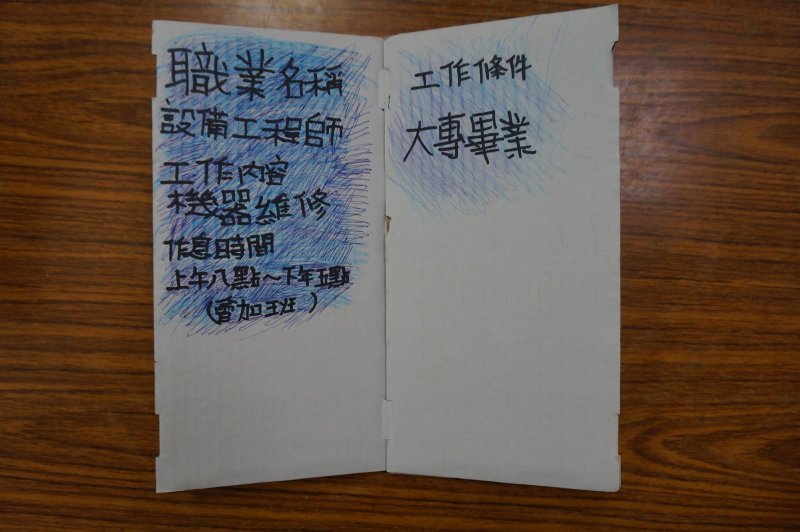 職業名稱
設備工程師
工作內容
機器維修
作息時間
上午八點～下午五點
(會加班)
工作條件
大專畢業